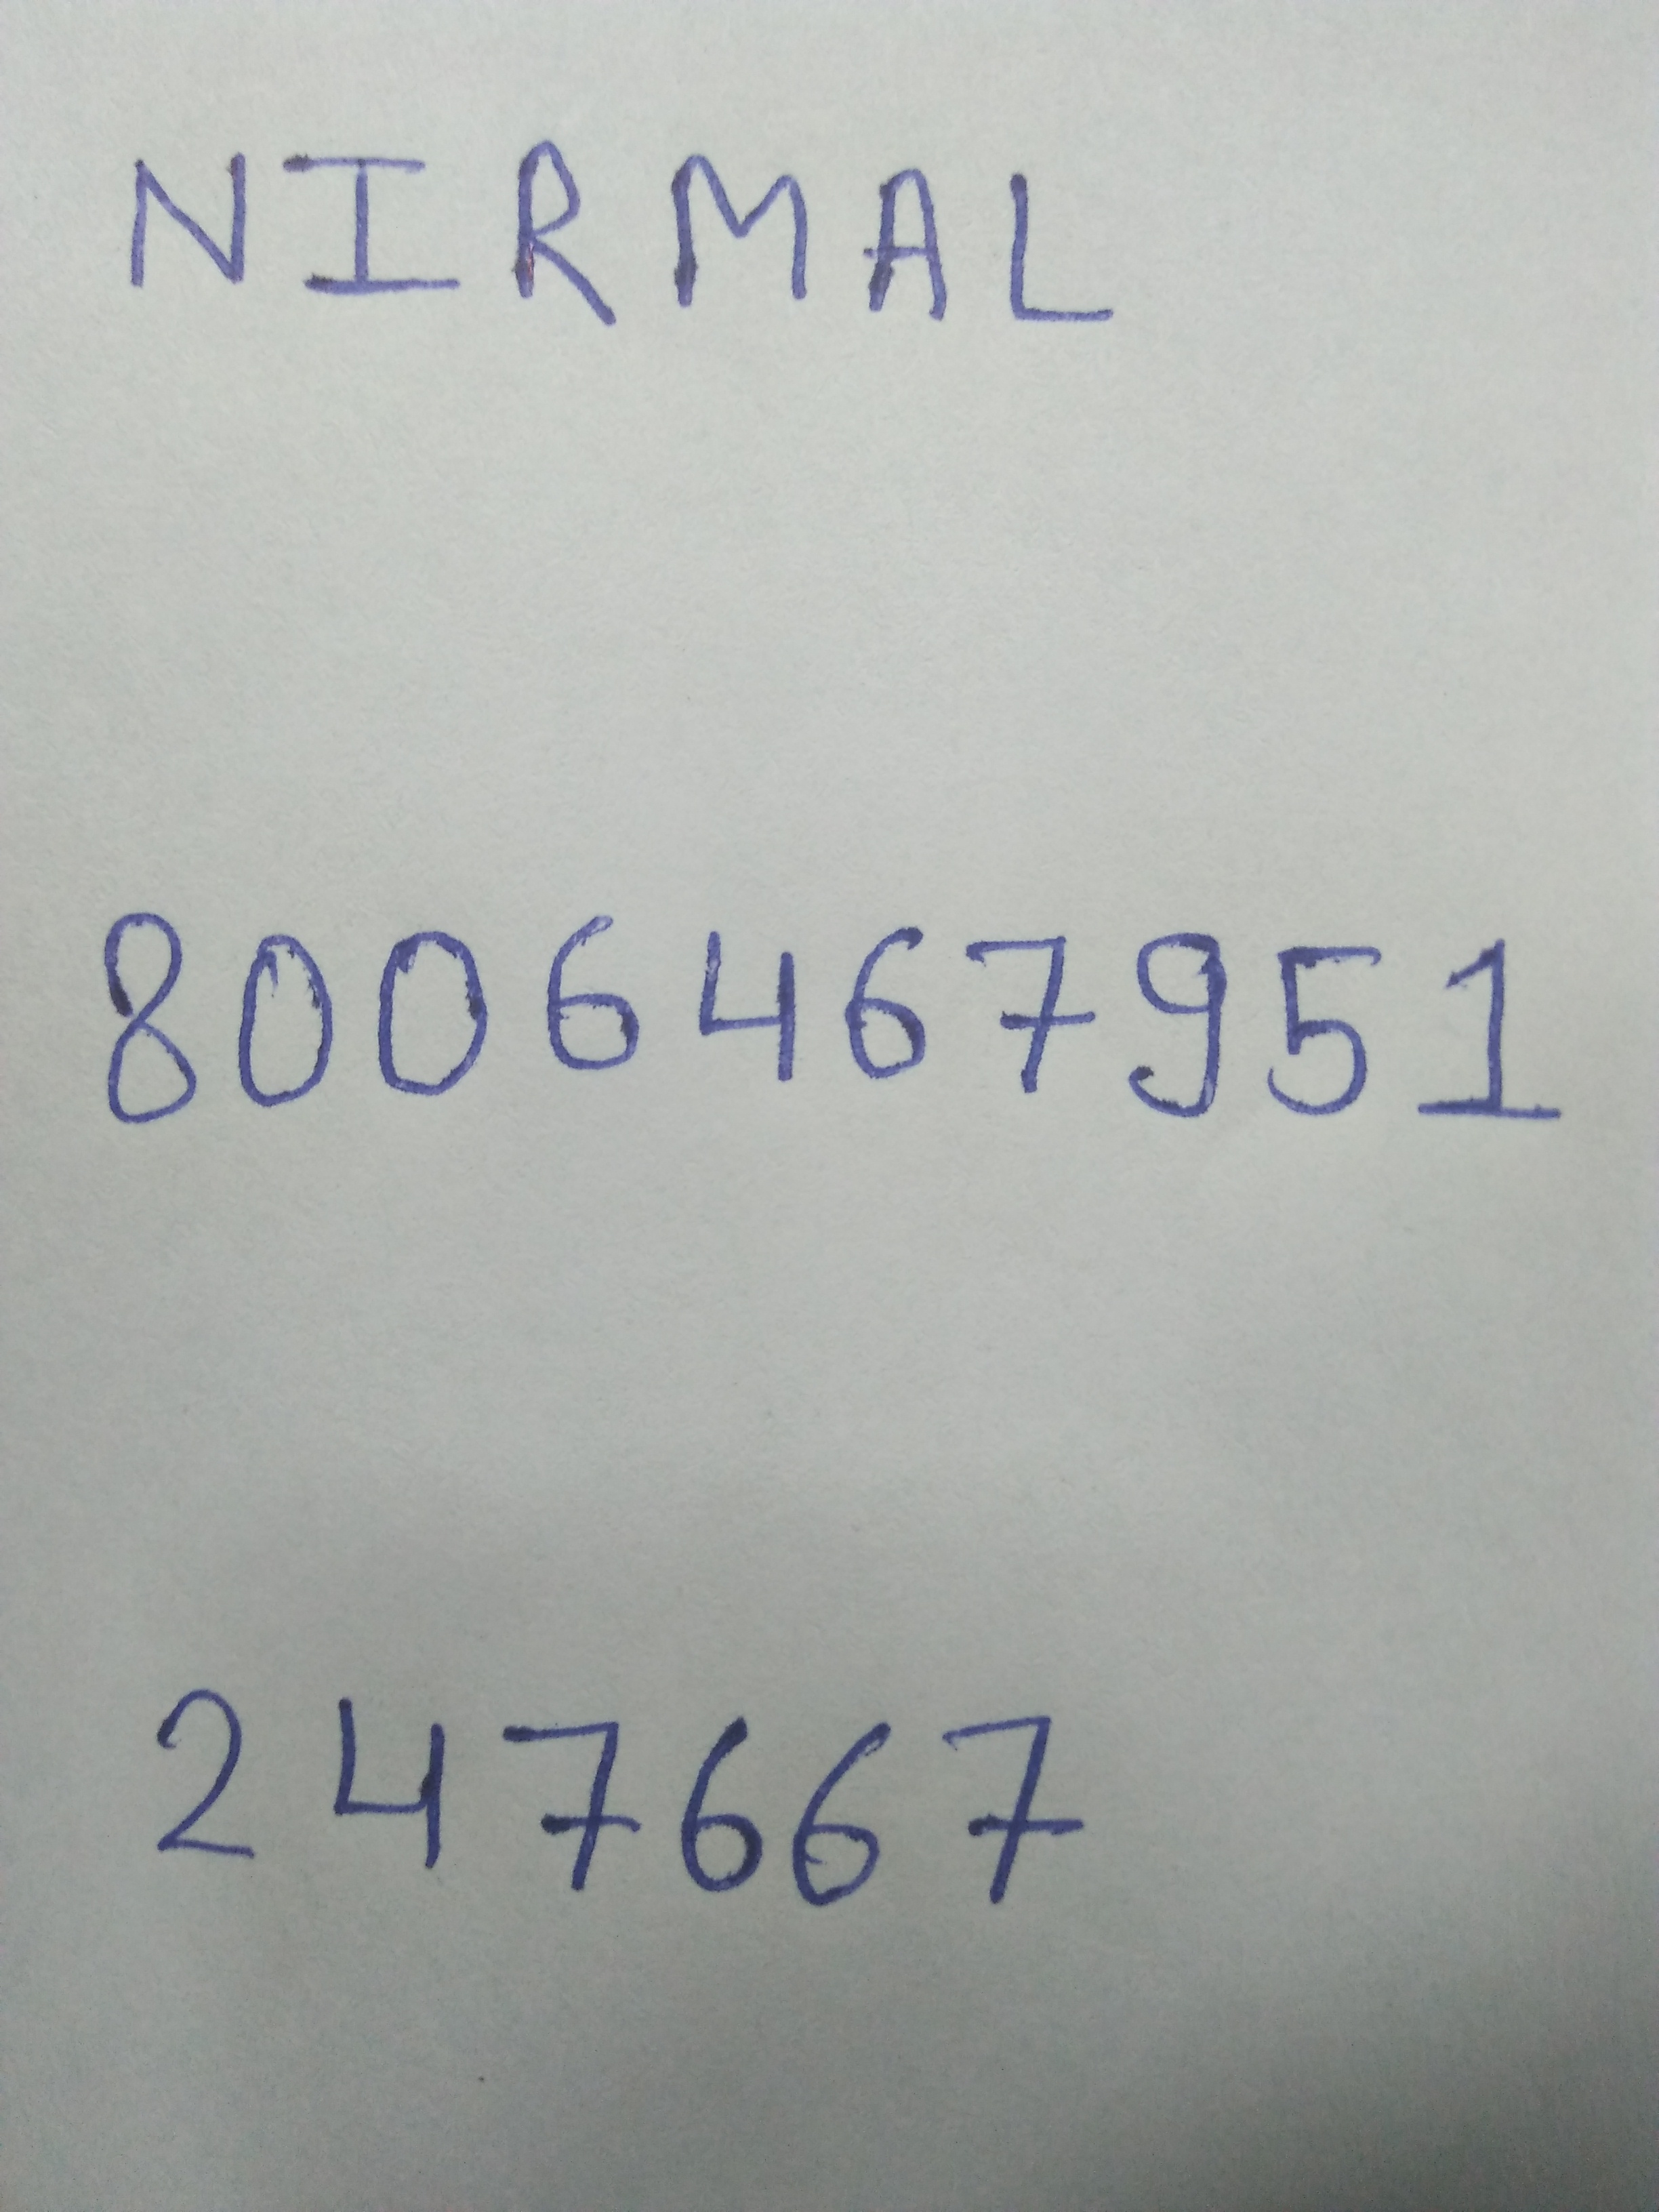 NIRMAL
8006467951
247667